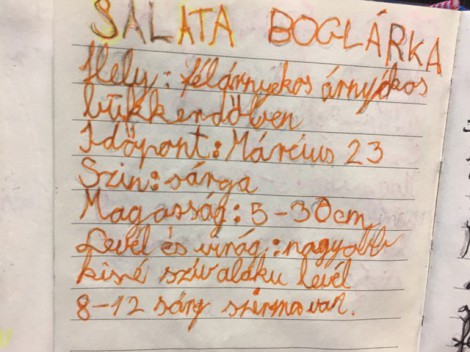 SALATA BOGLÁRKA
Hely: félárnyékos árnyékos
bükkerdőben
Időpont: Március 23
Szín: sárga
Magasság: 5-30cm
Levél és virág: nagyobb
kissé szív alakú levél
8-12 sárg szirmos van.